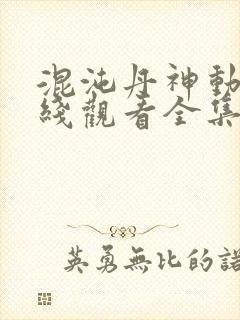 混沌丹神動
綫觀看全集
英勇無比的諾